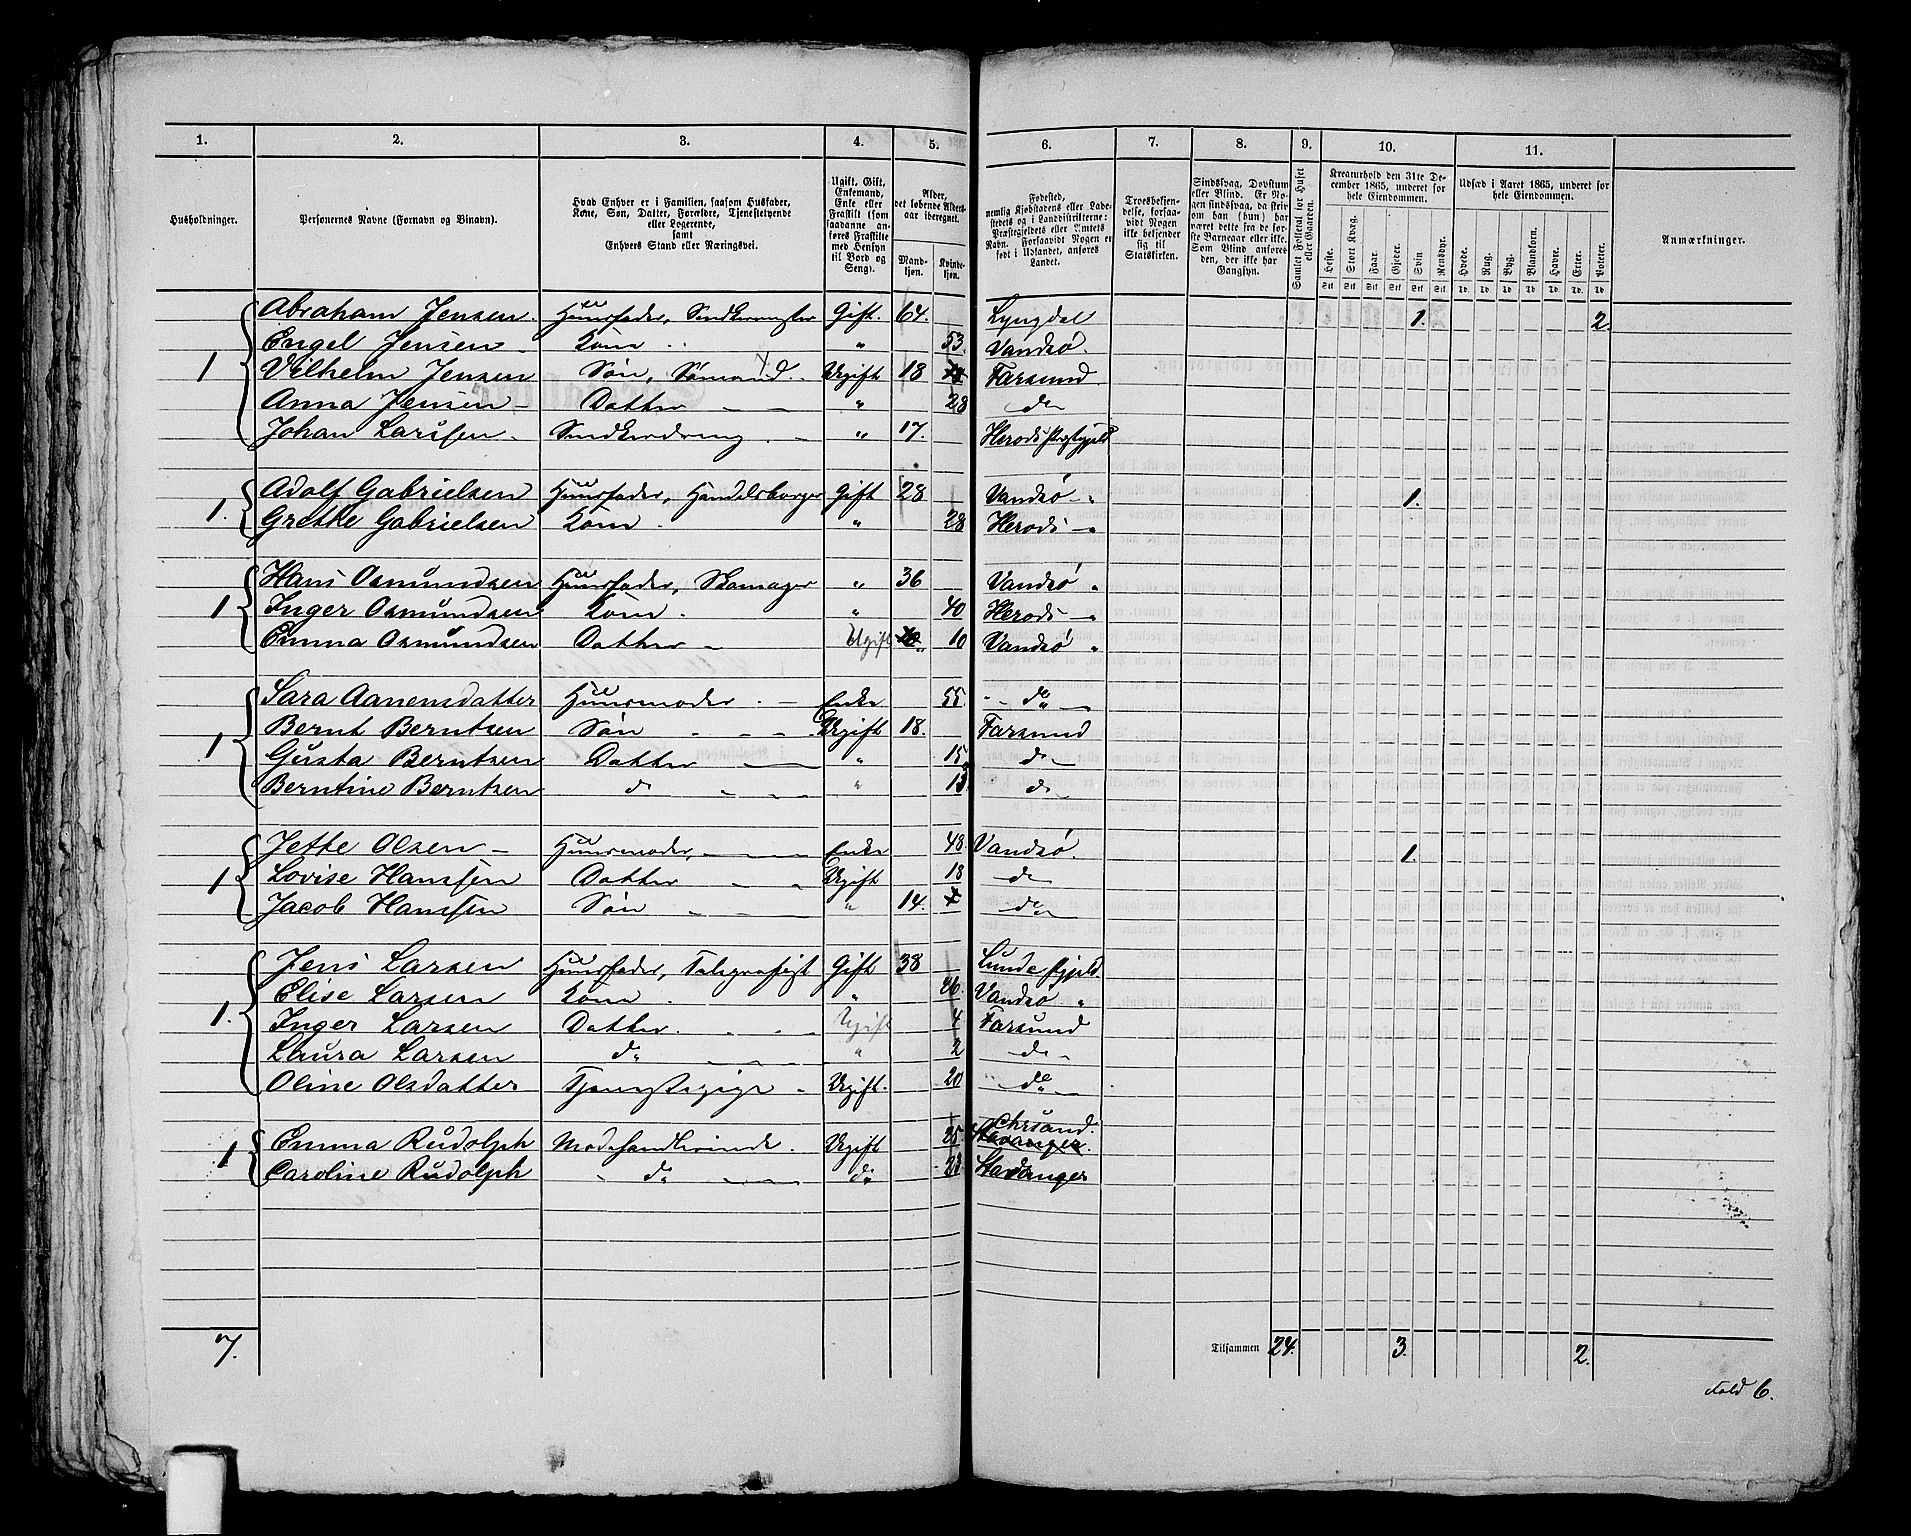 1. 2. 3. 4. 5. 6. 7. 8. 9. 10. 11.
Husholdninger.
Personernes Navne (Fornavn og Binavn).
Hvad Enhver er i Familien, saasom Husfader, Kone, Søn, Datter, Forældre, Tjenestetyende eller Logerende, samt Enhvers Stand eller Næringsvei.
Ugift, Gift, Enkemand, Enke eller Fraskilt (som saadanne anføres Fraskilte med Hensyn til Bord og Seng).
Alder, det løbende Aldersaar iberegnet.
Mandkjøn. Kvindekjøn.
Fødested, nemlig Kjøbstadens eller Ladestedets og i Landdistrikterne: Præstegjeldets eller Amtets Navn. Forsaavidt Nogen er født i Udlandet, anføres Landet.
Troesbekjendelse, forsaavidt Nogen ikke bekjender sig til Statskirken.
Sindssvag, Døvstum eller Blind. Er Nogen sindssvag, da skrives om han (hun) har været dette fra de første Barneaar eller ikke. Som Blind anføres den, der ikke har Gangsyn.
Samlet Folketal for Huset eller Gaarden.
Kreaturhold den 31te December 1865, underet for hele Eiendommen.
Heste. Stort Kvæg. Faar. Gjeder. Svin Rensdyr.
Udsæd i Aaret 1865, underet for hele Eiendommen.
Hvede. Rug. Byg. Blandkorn. Havre. Erter. Poteter.
Anmærkninger.
Abraham Jensen. Huusfader, Gift. 64. Lyngdal 1. 2.
Engel Jensen Kone " 53. Vandsø.
1 Vilhelm Jensen Søn, Sømand. Ugift 18 Farsund
Anna Jensen Datter " 28 do
Johan Larssen. " 17. Herods
Adolf Gabrielsen Huusfader, Handelsborger Gift 28 Vandsø 1.
1. Grethe Gabrielsen Kone " 28 Herods
Hans Osmundsen Huusfader, Skomager " 36 Vandsø "
1 Inger Osmundsen Kone. " 40 Herods
Emma Osmundsen Datter Ugift 10 Vandsø "
Sara Aanensdatter Huusmoder Enke 55. do
Bernt Berntsen Søn Ugift 18. Farsund
1 Gusta Berntsen Datter " 15 do
Berntine Berntsen do " 13 do
Jette Olsen Huusmoder, Enke 48. Vandsø. 1.
1 Lovise Hanssen Datter Ugift 18 do
Jacob Hanssen Søn " 14. do
Jens Larsen Huusfader, Telegrafist Gift 38 Lunde Pgjeld.
Elise Larsen Kone " 26. Vandsø "
1. Inger Larsen Datter. Ugift 4 Farsund
Laura Larsen do " 2 do
Oline Olsdatter Tjenestepige Ugift. 20 do
Chrsand.
1 Emma Rudolph Modehandlerinde. Ugift 25 Stavanger.
Caroline Rudolph do do 23 Stavanger
7. Tilsammen 24. 3. 2.
Fold 6.